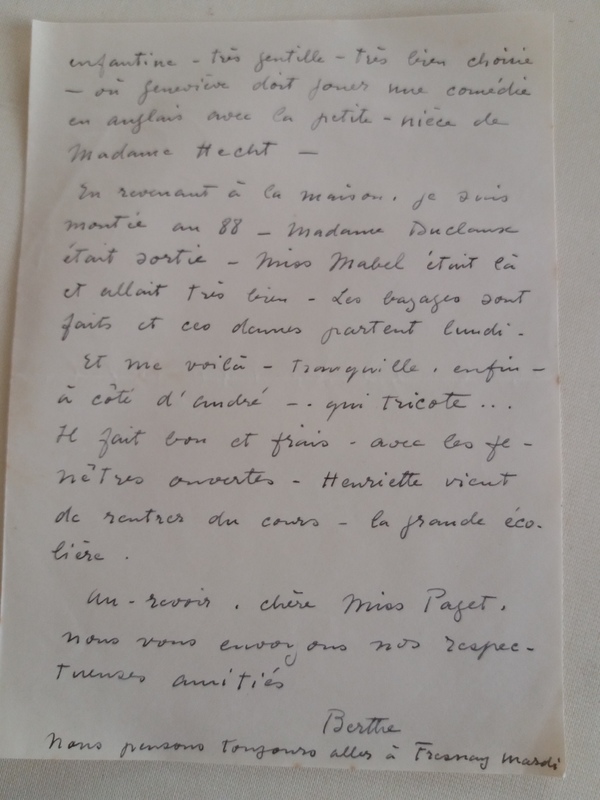 enfantine - très gentille - très bien choisie
- où Geneviève doit jouer une comédie
en anglais avec la petite-nièce de
Madame Hecht -
En revenant à la maison, je suis
montée au 88 - Madame Duclaux
était sortie - Miss Mabel était là
et allait très bien - Les bagages sont
faits et ces dames partent lundi -
Et me voilà - tranquille, enfin -
à côté d'andré -. qui tricote...
Il fait bon et frais - avec les fe-
nêtres ouvertes - Henriette vient
de rentrer du cours - la grande éco-
lière.
Au-revoir, chère Miss Paget,
nous vous envoyons nos respec-
tueuses amitiés
Berthe
Nous pensons toujours aller à Fresnay mardi